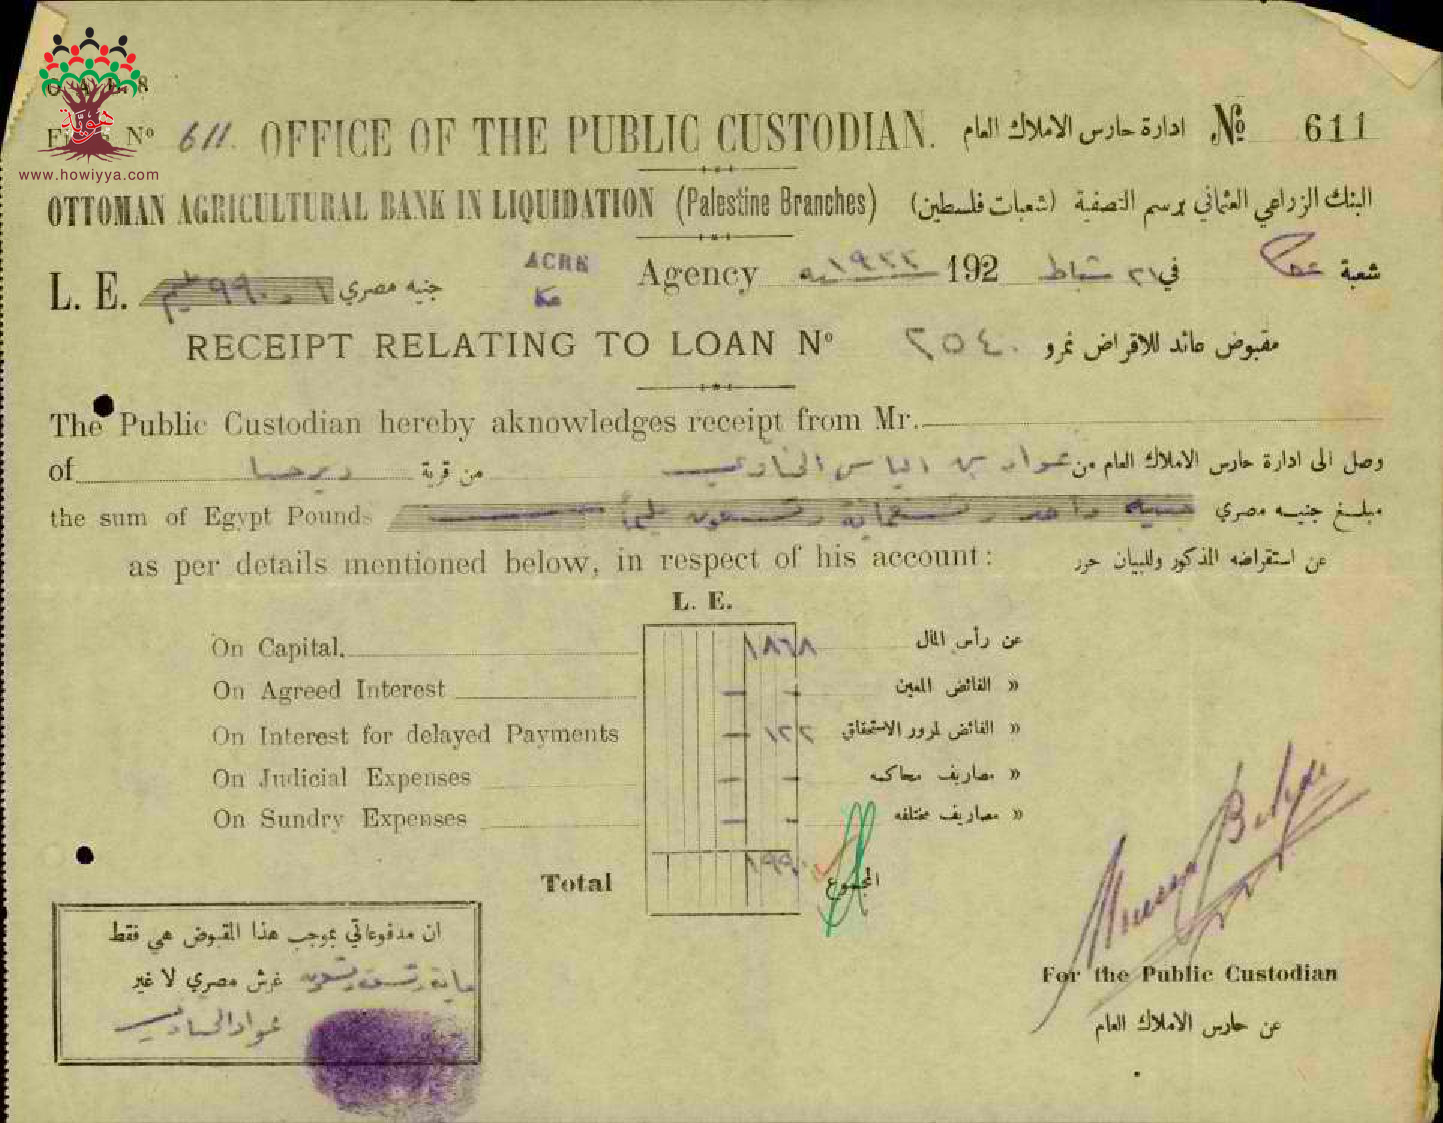 www.howiyya.com
Nº 611. OFFICE OF THE PUBLIC CUSTODIAN. ادارة حارس الاملاك العام Nº 611
OTTOMAN AGRICULTURAL BANK IN LIQUIDATION (Palestine Branches) البنك الزراعي العثماني برسم التصفية (شعبات فلسطين)
ACRE
L. E. ١ و ٩٩٠ مليم جنيه مصري عكا Agency ١٩٢٢ سنه 192 في ٢١ شباط شعبة عكا
RECEIPT RELATING TO LOAN Nº ٢٥٤٠ مقبوض عائد للاقراض نمرو
The Public Custodian hereby aknowledges receipt from Mr.
of ديرحنا من قرية عواد بن الياس الخوري وصل الى ادارة حارس الاملاك العام من
the sum of Egypt Pounds جنيه واحد وتسعمائة وتسعون مليماً مبلغ جنيه مصري
as per details mentioned below, in respect of his account : عن استقراضه المذكور وللبيان حرر
L. E.
On Capital. ١٨٦٨ عن رأس المال
On Agreed Interest — — » الفائض المعين
On Interest for delayed Payments — ١٢٢ » الفائض لمرور الاستحقاق
On Judicial Expenses — — » مصاريف محاكمه
On Sundry Expenses — — » مصاريف مختلفه
Total ١٩٩٠ المجموع
ان مدفوعاتي بموجب هذا المقبوض هي فقط
ماية وتسعة وتسعون غرش مصري لا غير
For the Public Custodian
عن حارس الاملاك العام